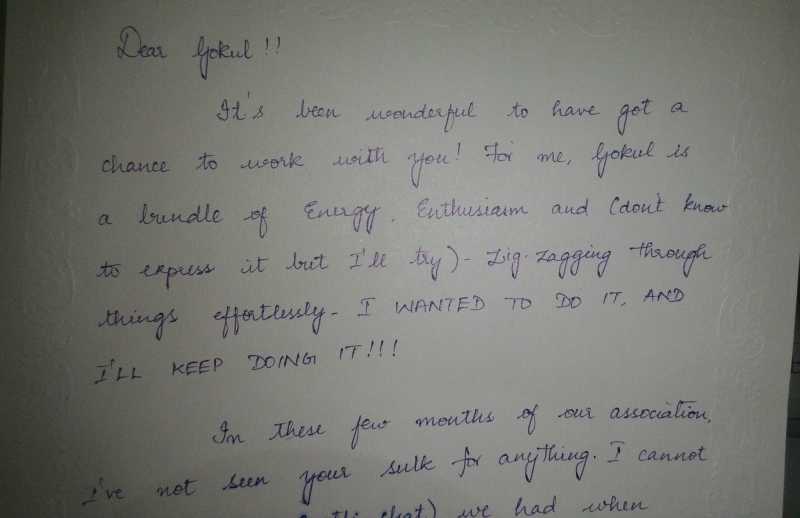 Dear Gokul!!
It's been wonderful to have got a
chance to work with you! For me, Gokul is
a bundle of Energy, Enthusiasm and (don't know
to express it but I'll try) - Zig-zagging through
things effortlessly - I WANTED TO DO IT, AND
I'LL KEEP DOING IT!!!
In these few months of our association,
I've not seen your sulk for anything. I cannot
chat) we had when